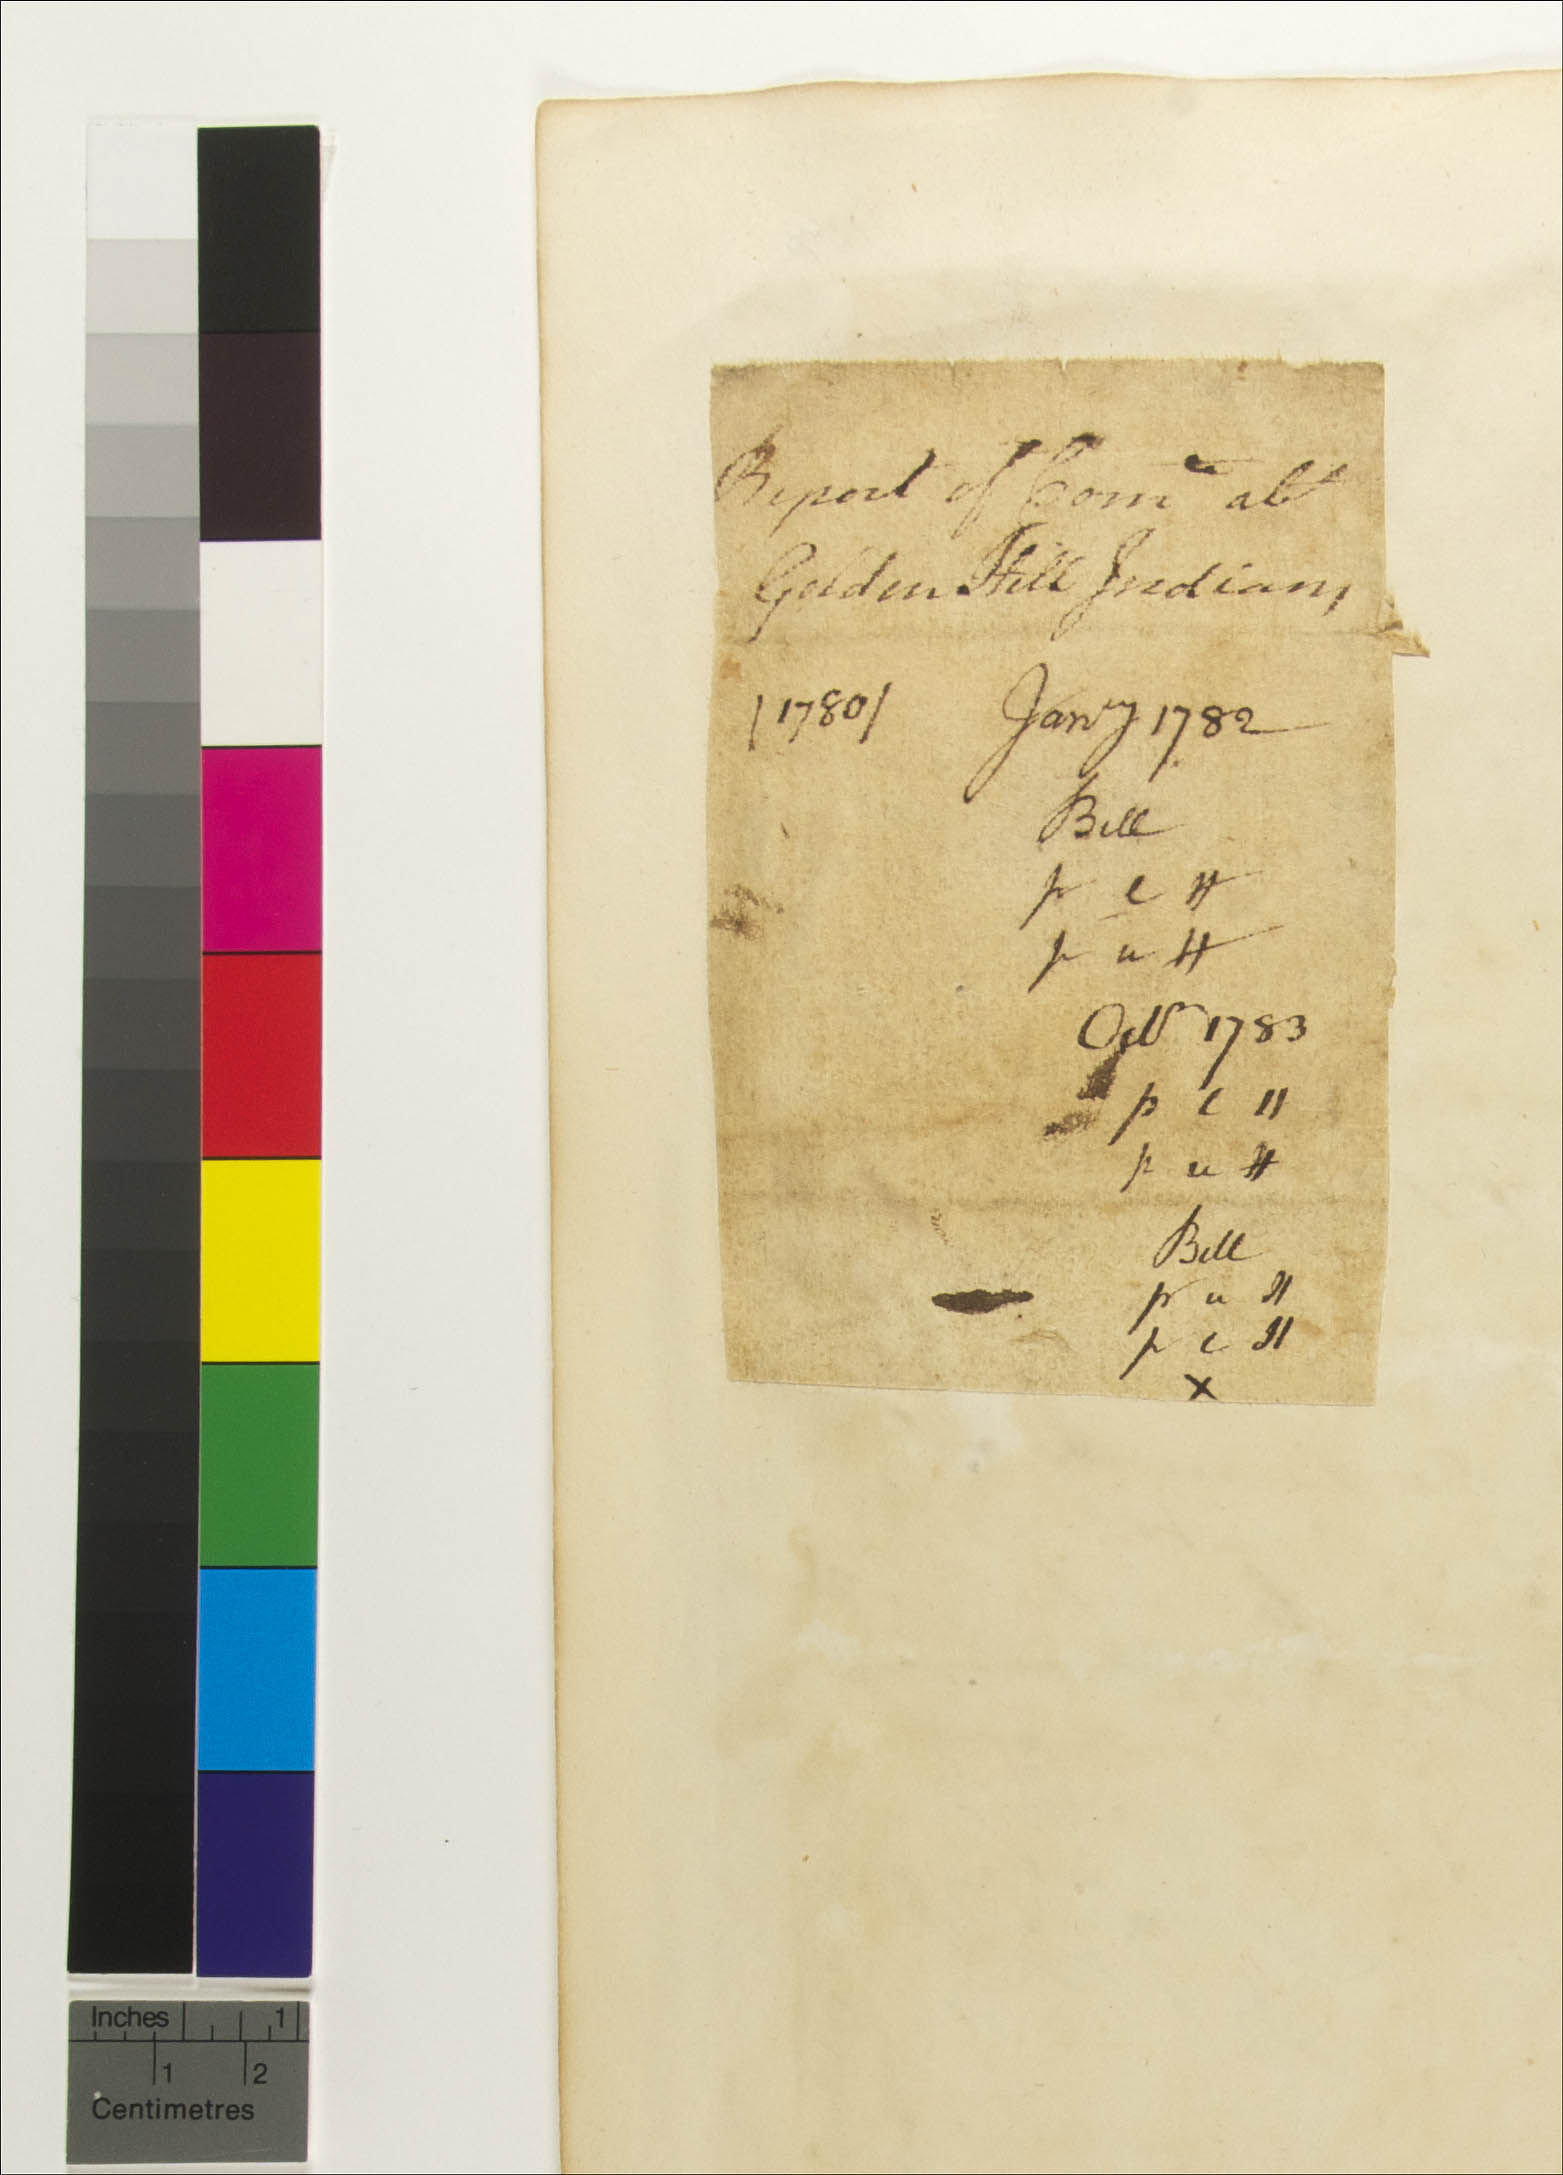 Report of Com̃ abt
Golden Hill Indians
/1780/ Janry 1782
Bill
p l H
p u H
Octbr 1783
p l H
p u H
Bill
p u H
p l H
x
Inches 1
1 2
Centimetres